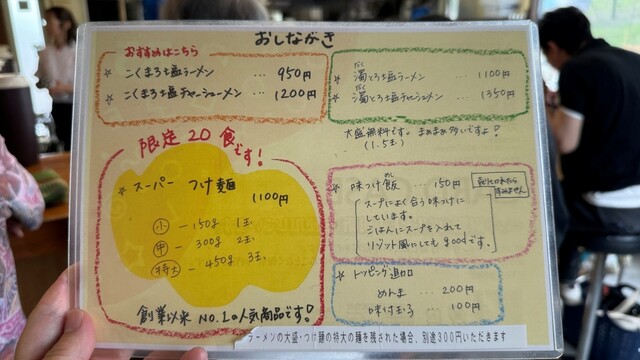 おしながき
おすすめはこちら
☆ こくまろ塩ラーメン … 950円
☆ こくまろ塩チャーシューメン … 1200円
限定20食です!
☆ スーパー つけ麺
1100円
小 ー 150g 1玉
中 ー 300g 2玉
特大 ー 450g 3玉
創業以来 NO.1の人気商品です!
だく
☆ 濁とろ塩ラーメン … 1100円
だく
☆ 濁とろ塩チャーシューメン … 1350円
大盛無料です。まぁまぁ多いですよ!
(1.5玉)
めし
☆ 味つけ飯 150円
売りきれたら
すみません
スープによく合う味つけに
しています。
ごはんにスープを入れて
リゾット風にしてもgoodです。
☆ トッピング追加
めんま … 200円
味付玉子 … 100円
ラーメンの大盛・つけ麺の特大の麺を残された場合、別途300円いただきます